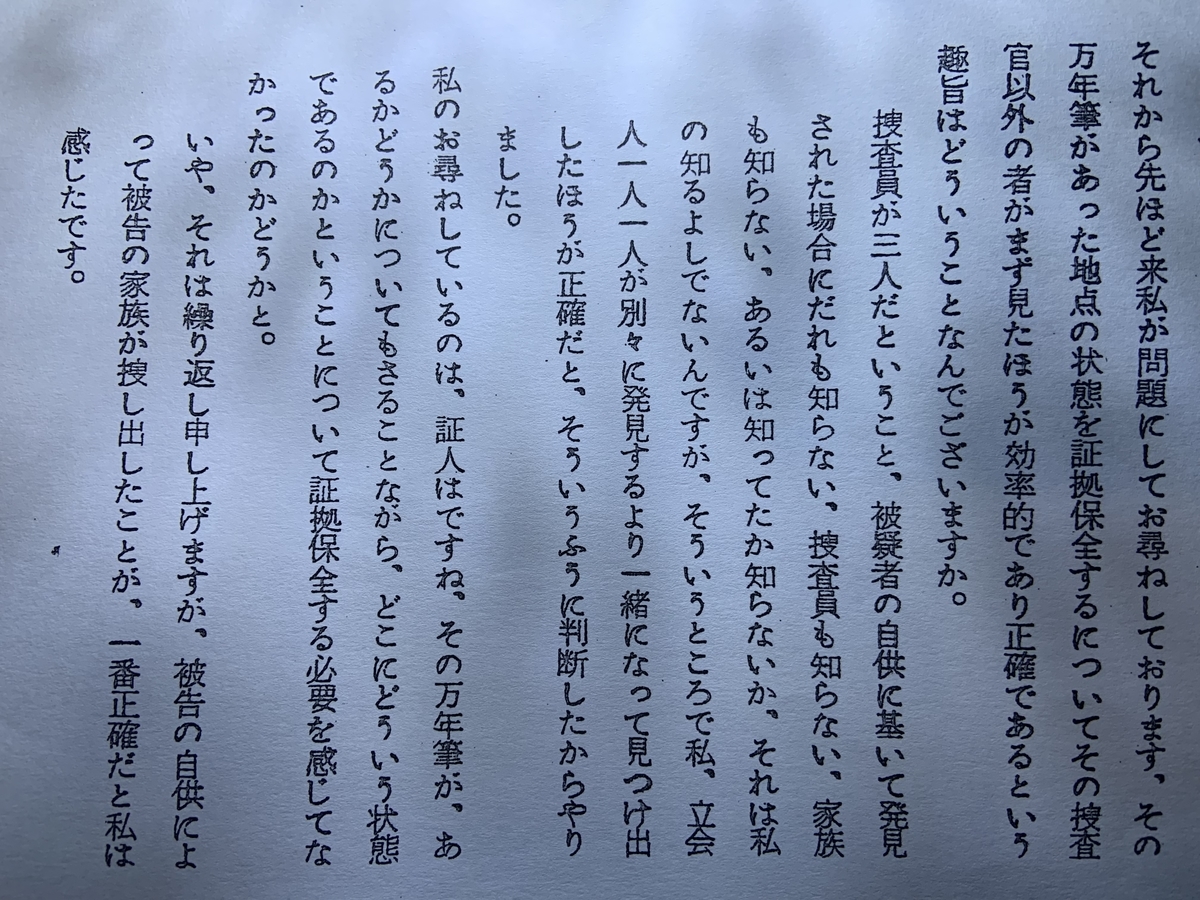 それから先ほど来私が問題にしてお尋ねしております、その
万年筆があった地点の状態を証拠保全するについてその捜査
官以外の者がまず見たほうが効率的であり正確であるという
趣旨はどういうことなんでございますか。
捜査員が三人だということ、被疑者の自供に基いて発見
された場合にだれも知らない、捜査員も知らない、家族
も知らない、あるいは知ってたか知らないか、それは私
の知るよしでないんですが、そういうところで私、立会
人一人一人が別々に発見するより一緒になって見つけ出
したほうが正確だと、そういうふうに判断したからやり
ました。
私のお尋ねしているのは、証人はですね、その万年筆が、あ
るかどうかについてもさることながら、どこにどういう状態
であるのかということについて証拠保全する必要を感じてな
かったのかどうかと。
いや、それは繰り返し申し上げますが、被告の自供によ
って被告の家族が捜し出したことが、一番正確だと私は
感じたです。